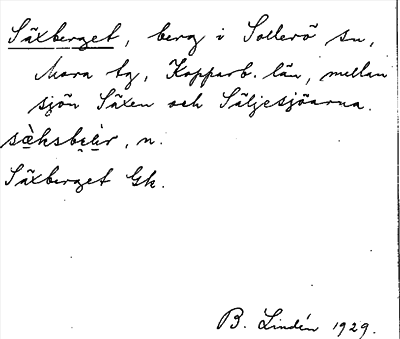 Säxberget, berg i Sollerö sn,
Mora tg, Kopparb. län, mellan
sjön Säxen och Säljesjöarna.
sæ̀ksbɛ̀r, n.
Säxberget Gk.
B. Lindén 1929.